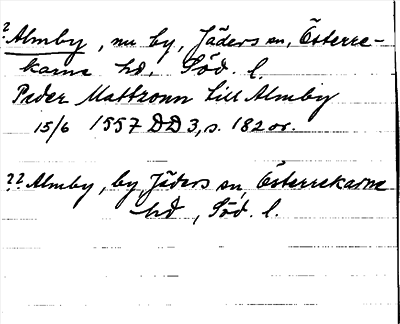 ? Almby, nu by, Jäders sn, Österre-
karne hd, Söd. l.
Peder Mattsonn till Almby
15/6 1557 DD 3, s. 182 or.
?? Almby, by, Jäders sn, Österrekarne
hd, Söd. l.